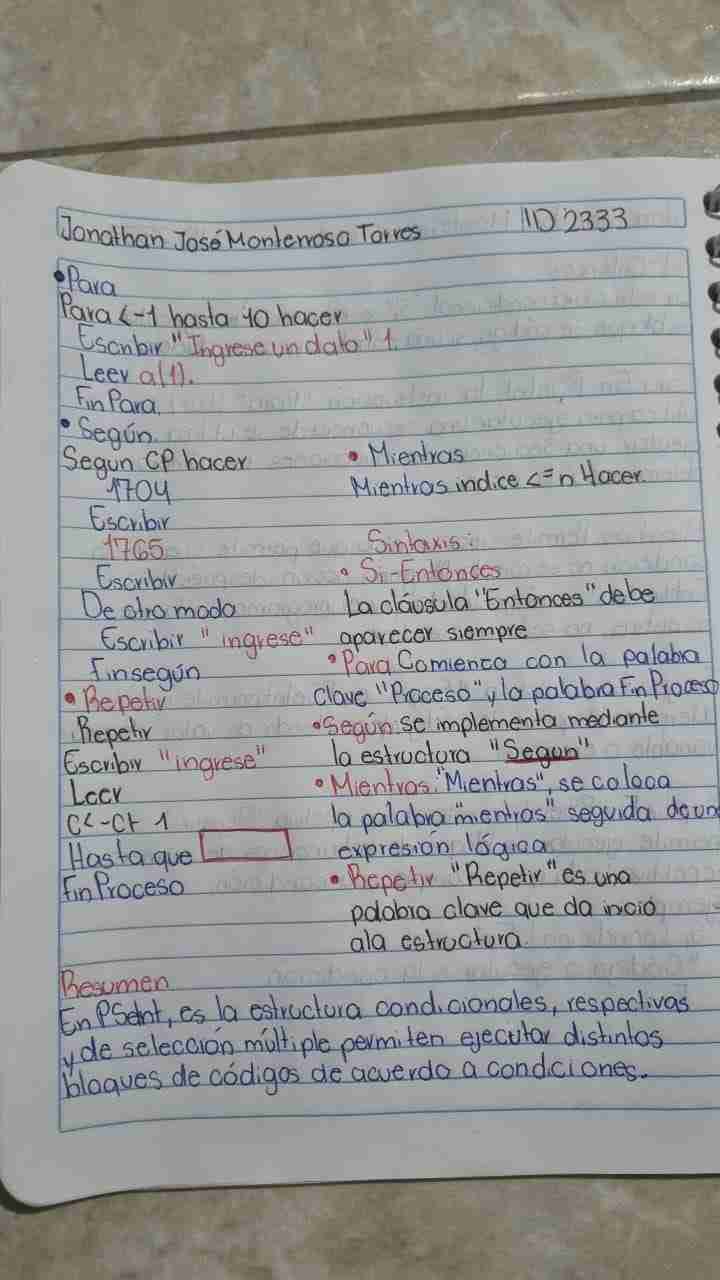 Jonathan José Monterroso Torres ID 2333
• Para
Para <-1 hasta 10 hacer
Escribir "Ingrese un dato" 1.
Leer a(1).
Fin Para.
• Según.
Segun CP hacer
1704
Escribir
1765
Escribir
De otro modo
Escribir "ingrese"
Finsegún
• Repetir
Repetir
Escribir "ingrese"
Leer
C<-C+ 1
Hasta que
Fin Proceso
• Mientras
Mientras indice <= n Hacer
Sintaxis:
• Si-Entonces
La cláusula "Entonces" debe
aparecer siempre
• Para Comienca con la palabra
clave "Proceso", la palabra Fin Proceso
• Según se implementa mediante
la estructura "Segun"
• Mientras: "Mientras", se coloca
la palabra "mientras" seguida de un
expresión lógica
• Repetir "Repetir" es una
palabra clave que da inicio
ala estructura.
Resumen
En PSeInt, es la estructura condicionales, respectivas
y de selección múltiple permiten ejecutar distintos
bloques de códigos de acuerdo a condiciones.